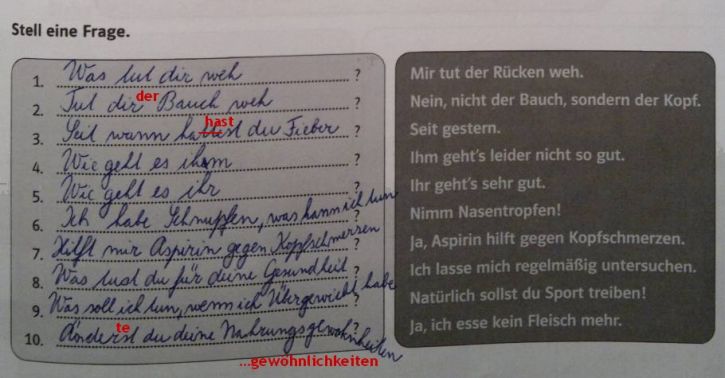 Stell eine Frage.
1. Was tut dir weh ?
der
2. Tut dir Bauch weh ?
hast
3. Seit wann hattest du Fieber ?
4. Wie geht es ihm ?
5. Wie geht es ihr ?
6. Ich habe Schnupfen, was kann ich tun ?
7. Hilft mir Aspirin gegen Kopfschmerzen ?
8. Was tust du für deine Gesundheit ?
9. Was soll ich tun, wenn ich Übergewicht habe ?
te
10. Änderst du deine Nahrungsgewohnheiten ?
...gewohnlichkeiten
Mir tut der Rücken weh.
Nein, nicht der Bauch, sondern der Kopf.
Seit gestern.
Ihm geht's leider nicht so gut.
Ihr geht's sehr gut.
Nimm Nasentropfen!
Ja, Aspirin hilft gegen Kopfschmerzen.
Ich lasse mich regelmäßig untersuchen.
Natürlich sollst du Sport treiben!
Ja, ich esse kein Fleisch mehr.